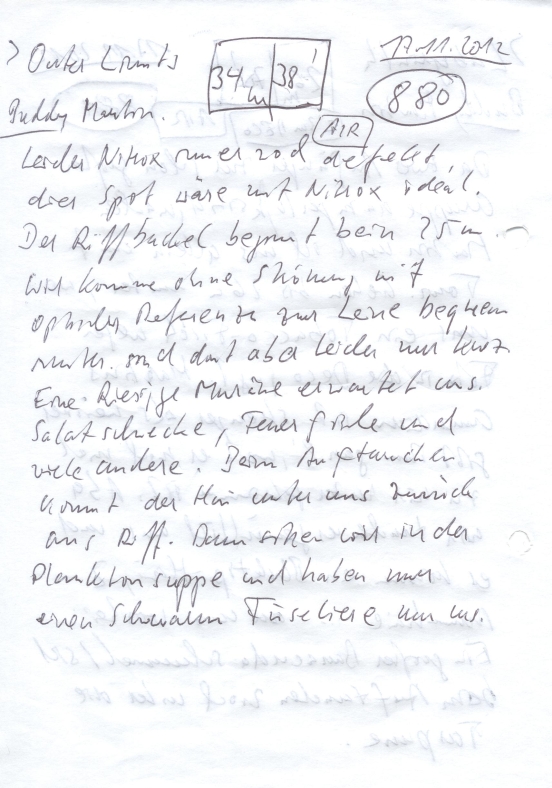 > Outer Limits 34m 38' 17.11.2012
Buddy 880
AIR
Leider Nitrox immer noch defekt,
dies Spot wäre mit Nitrox ideal.
Der Riffbuckel beginnt bein 25m.
Wir komme ohne Strömung mit
optischer Referenz zur Leine bequem
runter. sind dort aber leider nur kurz
Eine Riesige Muräne erwartet uns.
Salatschecke, Feuerfische und
viele andere. Beim Auftauchen
kommt der Hai unter uns zurück
ans Riff. Dann sehen wir in der
Planktonsuppe und haben nur
einen Schwarm Füseliere um uns.